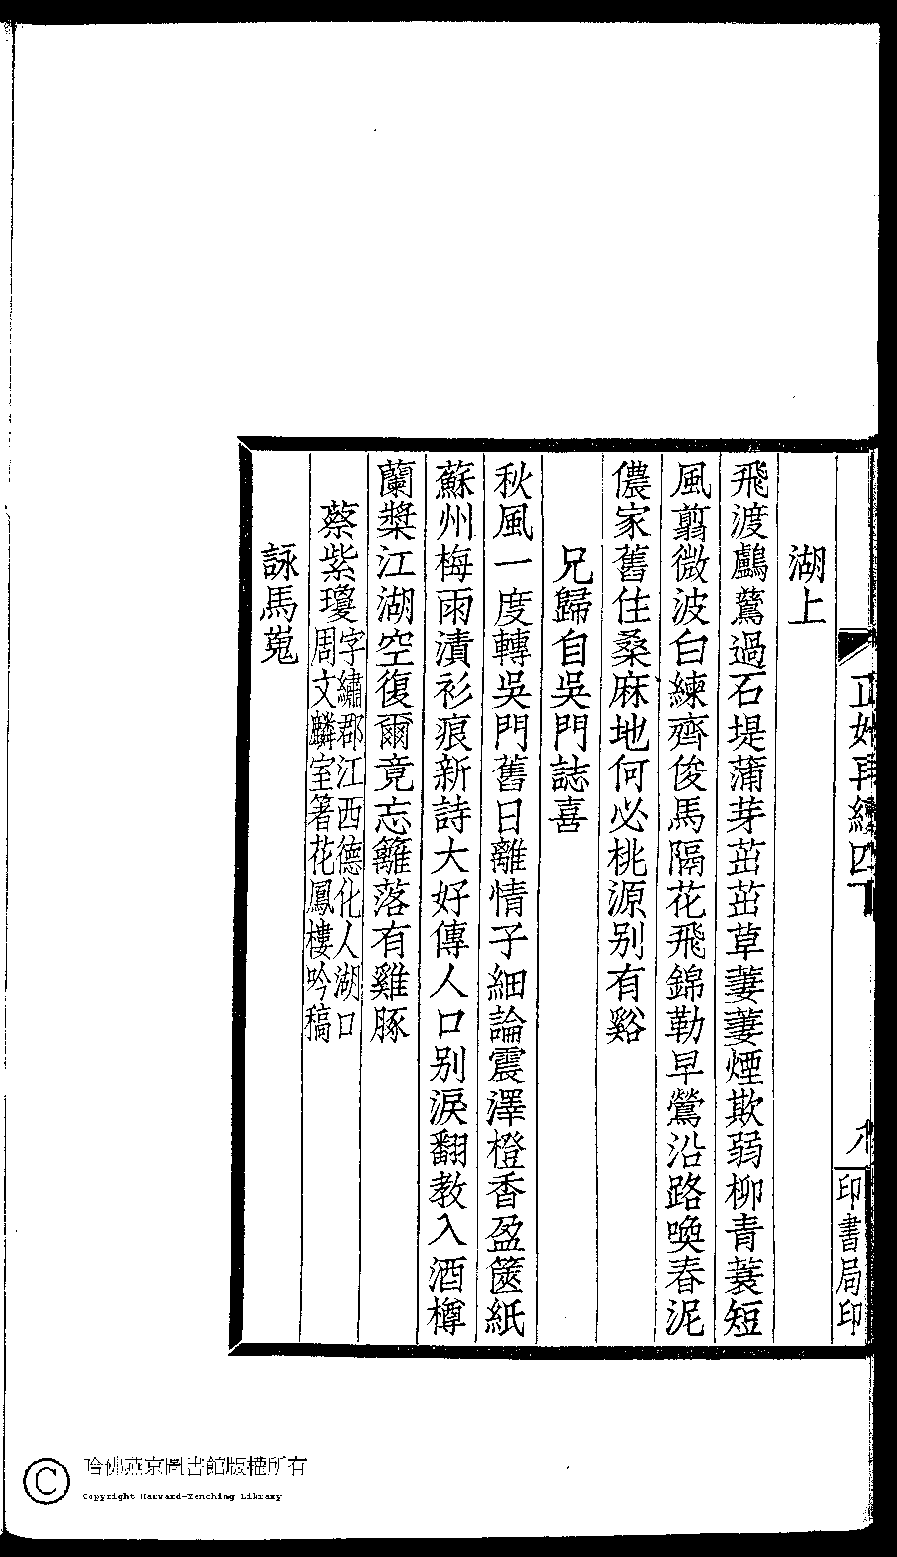 正始再續四下
八
印書局印
湖上
飛渡鸕鶿過石堤蒲芽茁茁草萋萋煙欺弱柳青蓑短
風翦微波白練齊俊馬隔花飛錦勒早鶯沿路喚春泥
儂家舊住桑麻地何必桃源别有谿
兄歸自吳門誌喜
秋風一度轉吳門舊日離情子細論震澤橙香盈篋紙
蘇州梅雨漬衫痕新詩大好傳人口别淚翻教入酒樽
蘭槳江湖空復爾竟忘籬落有雞豚
蔡紫瓊字繡郡江西德化人湖口
周文麟室箸花鳳樓吟稿
詠馬嵬
哈佛燕京圖書館版權所有
Copyright Harvard-Yenching Library